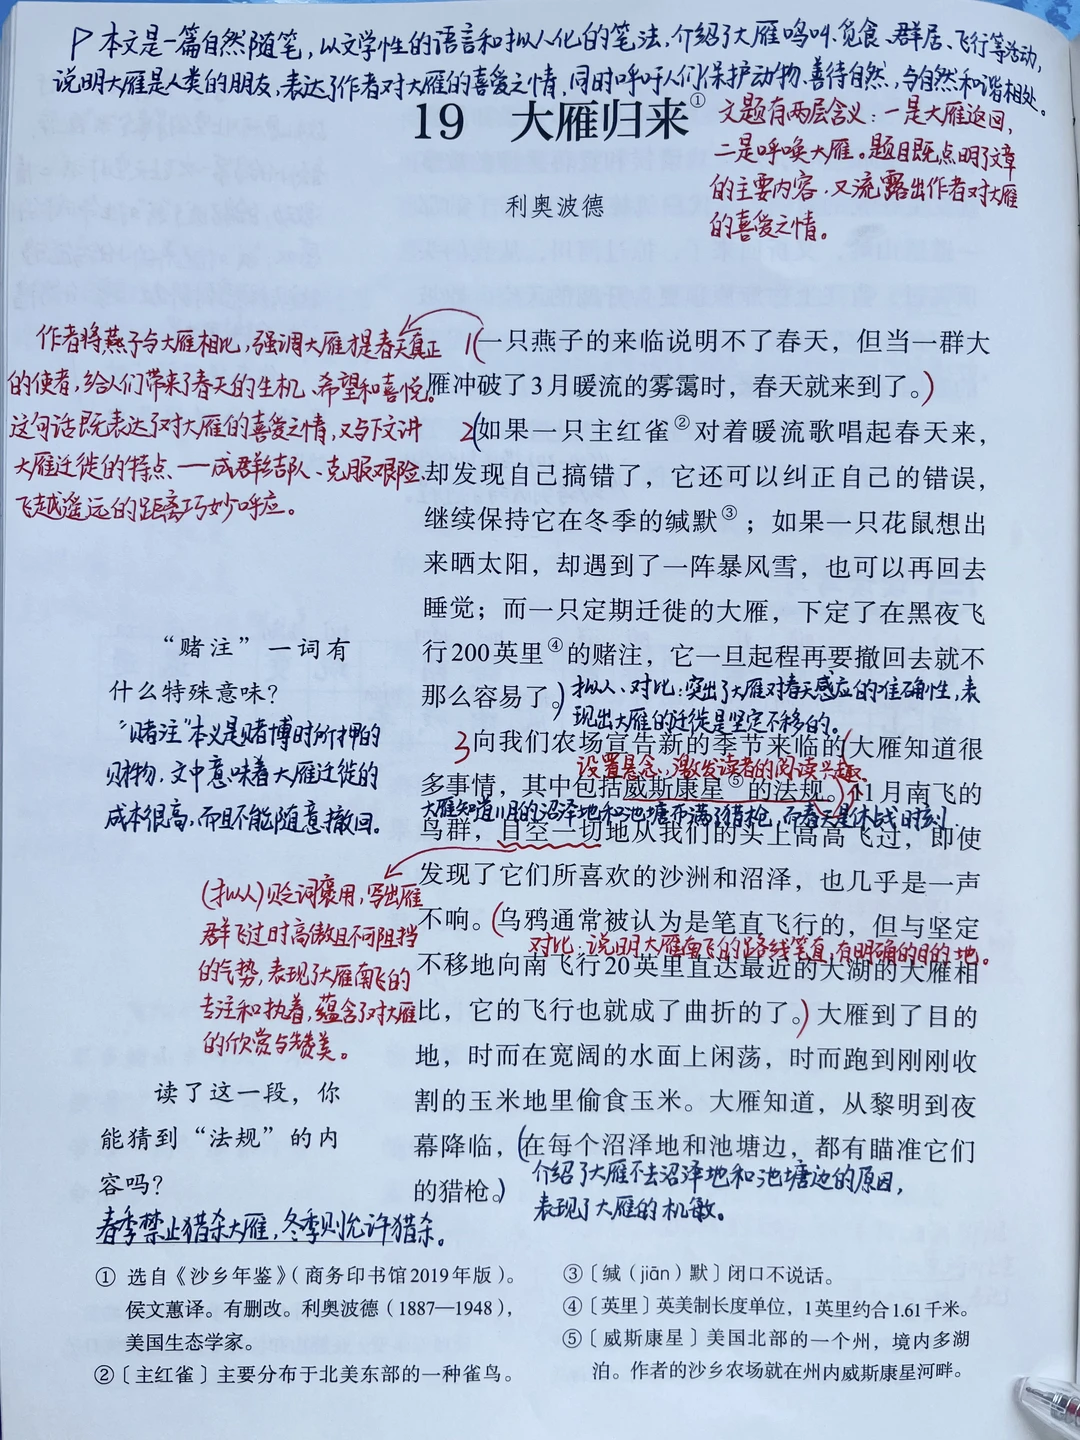 本文是一篇自然随笔,以文学性的语言和拟人化的笔法,介绍了大雁鸣叫、觅食、群居、飞行等活动,
说明大雁是人类的朋友,表达了作者对大雁的喜爱之情,同时呼吁人们保护动物、善待自然,与自然和谐相处。
19 大雁归来①
文题有两层含义:一是大雁返回,
二是呼唤大雁。题目既点明了文章
的主要内容,又流露出作者对大雁
的喜爱之情。
利奥波德
作者将燕子与大雁相比,强调大雁才是春天真正
的使者,给人们带来了春天的生机、希望和喜悦。
这句话既表达了对大雁的喜爱之情,又与下文讲
大雁迁徙的特点——成群结队、克服艰险、
飞越遥远的距离巧妙呼应。
1(一只燕子的来临说明不了春天,但当一群大
雁冲破了3月暖流的雾霭时,春天就来到了。)
2(如果一只主红雀②对着暖流歌唱起春天来,
却发现自己搞错了,它还可以纠正自己的错误,
继续保持它在冬季的缄默③;如果一只花鼠想出
来晒太阳,却遇到了一阵暴风雪,也可以再回去
睡觉;而一只定期迁徙的大雁,下定了在黑夜飞
行200英里④的赌注,它一旦起程再要撤回去就不
那么容易了。)
拟人、对比:突出了大雁对春天感应的准确性,表
现出大雁的迁徙是坚定不移的。
“赌注”一词有
什么特殊意味?
“赌注”本义是赌博时所押的
财物,文中意味着大雁迁徙的
成本很高,而且不能随意撤回。
3向我们农场宣告新的季节来临的(大雁知道很
设置悬念,激发读者的阅读兴趣。
多事情,其中包括威斯康星⑤的法规。)11月南飞的
大雁知道11月的沼泽地和池塘布满了猎枪,而春天是休战时刻。
鸟群,目空一切地从我们的头上高高飞过,即使
发现了它们所喜欢的沙洲和沼泽,也几乎是一声
不响。(乌鸦通常被认为是笔直飞行的,但与坚定
对比:说明大雁南飞的路线笔直,有明确的目的地。
不移地向南飞行20英里直达最近的大湖的大雁相
比,它的飞行也就成了曲折的了。)大雁到了目的
地,时而在宽阔的水面上闲荡,时而跑到刚刚收
割的玉米地里偷食玉米。大雁知道,从黎明到夜
幕降临,(在每个沼泽地和池塘边,都有瞄准它们
的猎枪。)
介绍了大雁不去沼泽地和池塘边的原因,
表现了大雁的机敏。
(拟人)贬词褒用,写出雁
群飞过时高傲且不可阻挡
的气势,表现了大雁南飞的
专注和执着,蕴含了对大雁
的欣赏与赞美。
读了这一段,你
能猜到“法规”的内
容吗?
春季禁止猎杀大雁,冬季则允许猎杀。
① 选自《沙乡年鉴》(商务印书馆2019年版)。
侯文蕙译。有删改。利奥波德(1887—1948),
美国生态学家。
②〔主红雀〕主要分布于北美东部的一种雀鸟。
③〔缄(jiān)默〕闭口不说话。
④〔英里〕英美制长度单位,1英里约合1.61千米。
⑤〔威斯康星〕美国北部的一个州,境内多湖
泊。作者的沙乡农场就在州内威斯康星河畔。